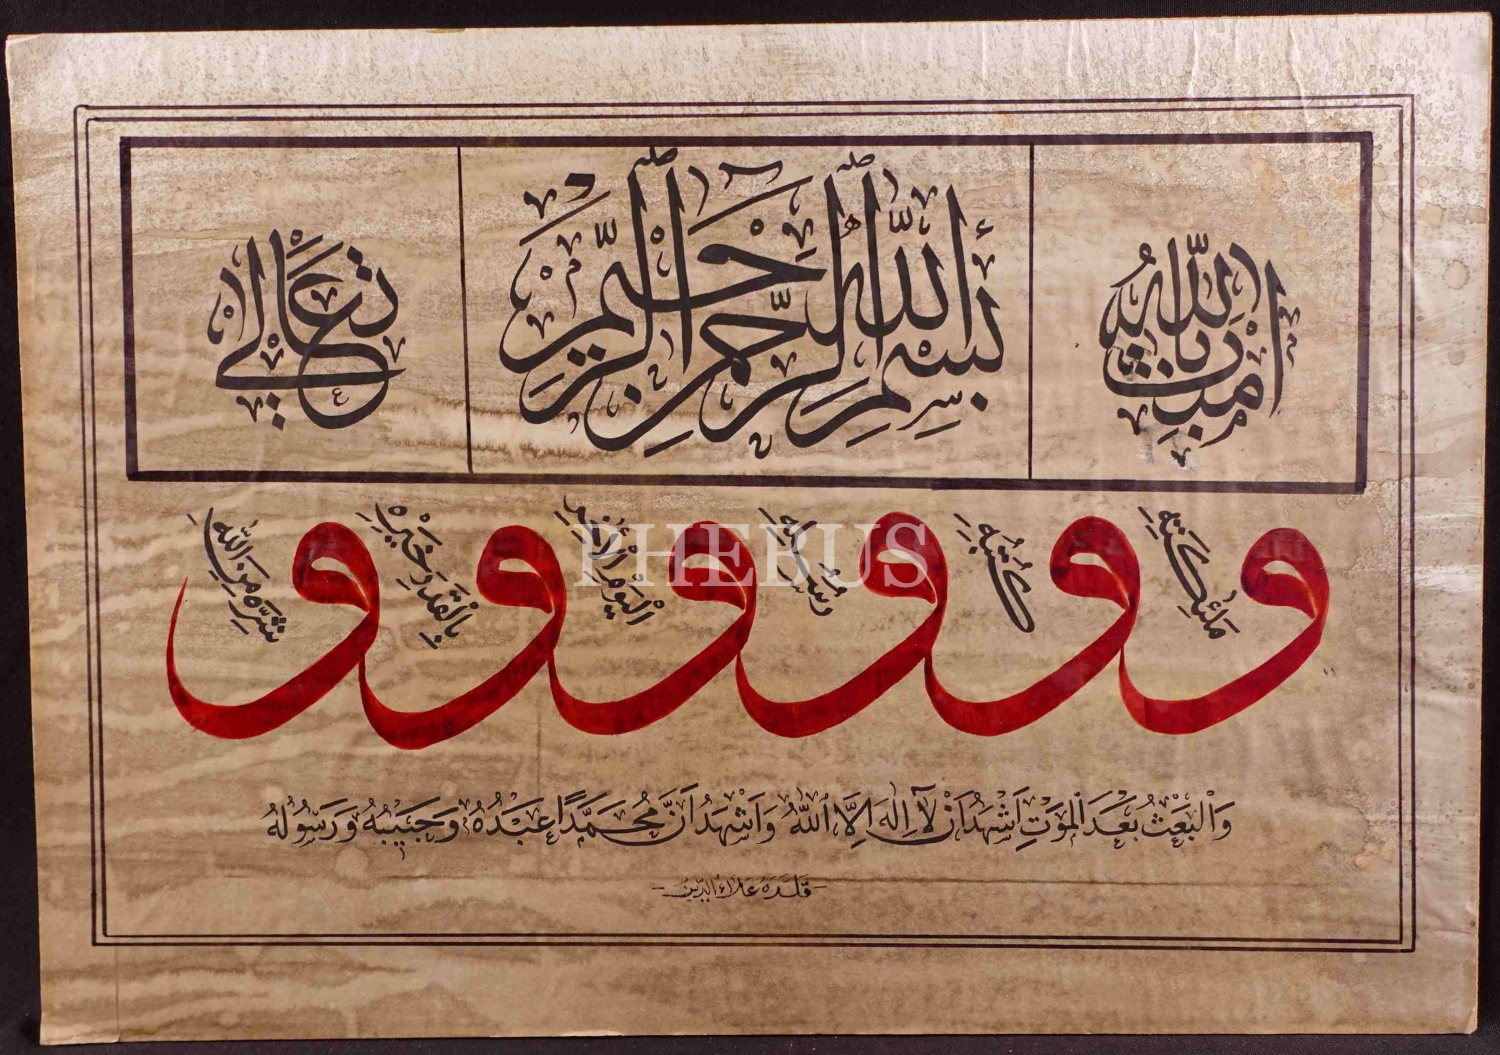 آمنت بالله
بسم الله الرحمن الرحيم
تعالى
و ملئكته و كتبه و رسله و اليوم الأخر و بالقدر خيره و شره من الله
وَالْبَعْثُ بَعْدَ الْمَوْتِ اَشْهَدُ اَنْ لَآ اِلٰهَ اِلَّا اللّٰهُ وَاَشْهَدُ اَنَّ مُحَمَّدًا عَبْدُهُ وَحَبِيبُهُ وَرَسُولُهُ
قلده علاء الدين
PHEBUS